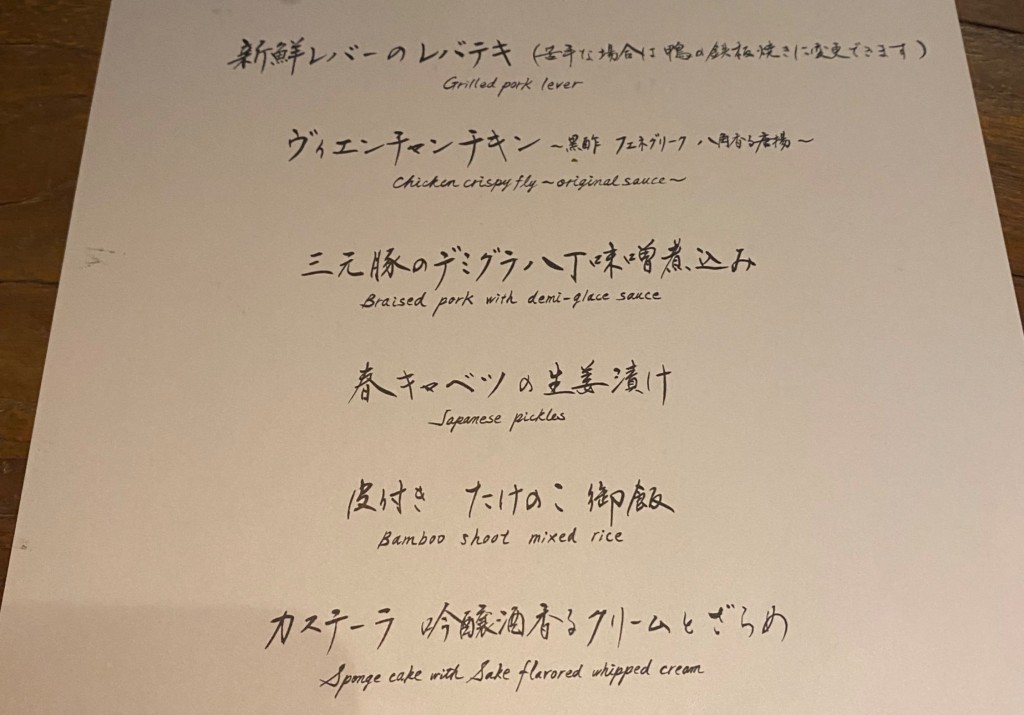 新鮮レバーのレバテキ (苦手な場合は 鴨の鉄板焼きに変更できます)
Grilled pork lever
ヴィエンチャンチキン ~黒酢 フェネグリーク 八角香る広場~
Chicken crispy fly ~original sauce~
三元豚のデミグラ八丁味噌煮込み
Braised pork with demi-glace sauce
春キャベツの生姜漬け
Japanese pickles
皮付き たけのこ 御飯
Bamboo shoot mixed rice
カステーラ 吟醸酒香るクリームとざらめ
Sponge cake with Sake flavored whipped cream